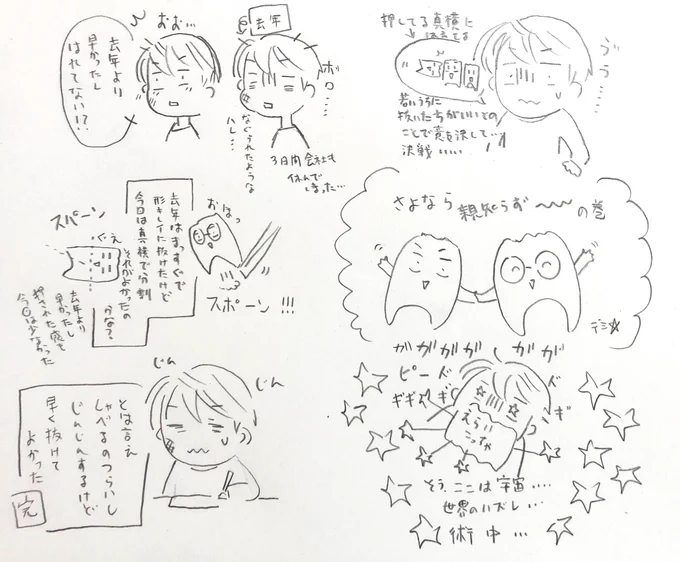 押してる真横に
はえてる
ヴゥ……
若いうちに
抜いた方がいいとの
ことで意を決して…
決戦……
さよなら
親知らず〜〜の巻
デミ☆
ガガガガガガ
ピード
ギギギギ
えらい
こっちゃ
そう、ここは宇宙……
世界のハズレ…
術中…
去年
ボロ…
なぐられたような
ハレ…
3日間会社も
休んで
しまった…
おぉ…
去年より
早かったし
はれてない!?
去年はまっすぐで
形キレイに抜けたけど
今日は真横で分割
それがよかったの
かな?
おはっ
スポーン!!!
スパーン
ぐえ
去年より
早かったし
押された感も
今日は少なかった
じん
じん
とは言え
しゃべるのつらいし
じんじんするけど
早く抜けて
よかった
完